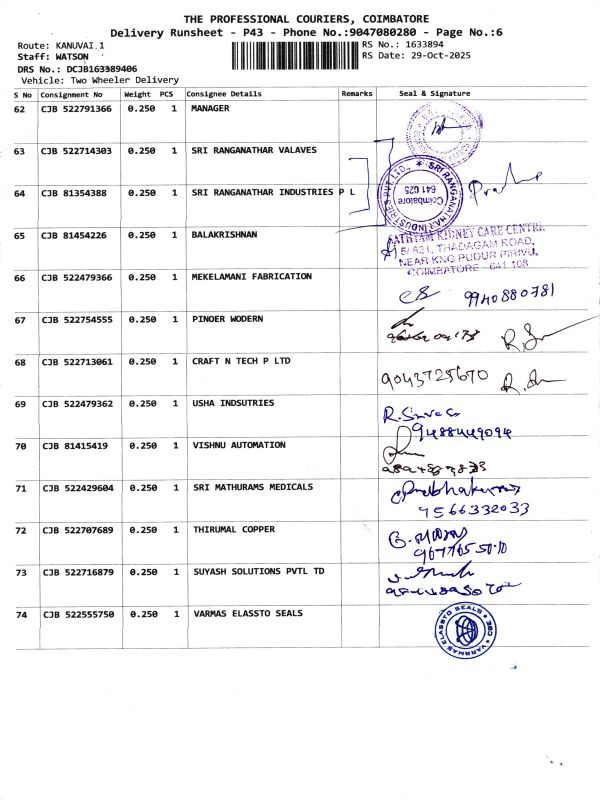 THE PROFESSIONAL COURIERS, COIMBATORE
Delivery Runsheet - P43 - Phone No.:9047080280 - Page No.:6
Route: KANUVAI.1
RS No.: 1633894
Staff: WATSON
RS Date: 29-Oct-2025
DRS No.: DCJB163389406
Vehicle: Two Wheeler Delivery
S No Consignment No Weight PCS Consignee Details Remarks Seal & Signature
62 CJB 522791366 0.250 1 MANAGER
63 CJB 522714303 0.250 1 SRI RANGANATHAR VALAVES
64 CJB 81354388 0.250 1 SRI RANGANATHAR INDUSTRIES P L
SRI RANGANATHAR INDUSTRIES PVT LTD.,
Coimbatore
641 025
65 CJB 81454226 0.250 1 BALAKRISHNAN
SATHYAM KIDNEY CARE CENTRE
5/621, THADAGAM ROAD,
NEAR KNG PUDUR PIRIVU,
COIMBATORE - 641 108
66 CJB 522479366 0.250 1 MEKELAMANI FABRICATION
9940880781
67 CJB 522754555 0.250 1 PINOER WODERN
68 CJB 522713061 0.250 1 CRAFT N TECH P LTD
9043725670
69 CJB 522479362 0.250 1 USHA INDSUTRIES
9488449094
70 CJB 81415419 0.250 1 VISHNU AUTOMATION
71 CJB 522429604 0.250 1 SRI MATHURAMS MEDICALS
9566332033
72 CJB 522707689 0.250 1 THIRUMAL COPPER
73 CJB 522716879 0.250 1 SUYASH SOLUTIONS PVTL TD
74 CJB 522555750 0.250 1 VARMAS ELASSTO SEALS
VARMAS ELASSTO SEALS